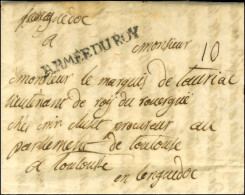 a
monsieur
ARMÉE DU ROY
10
monsieur le marquis de tauriac
lieutenant de roy du rouergue
ches mr procureur au
parlement de toulouse
a toulouse
en languedoc